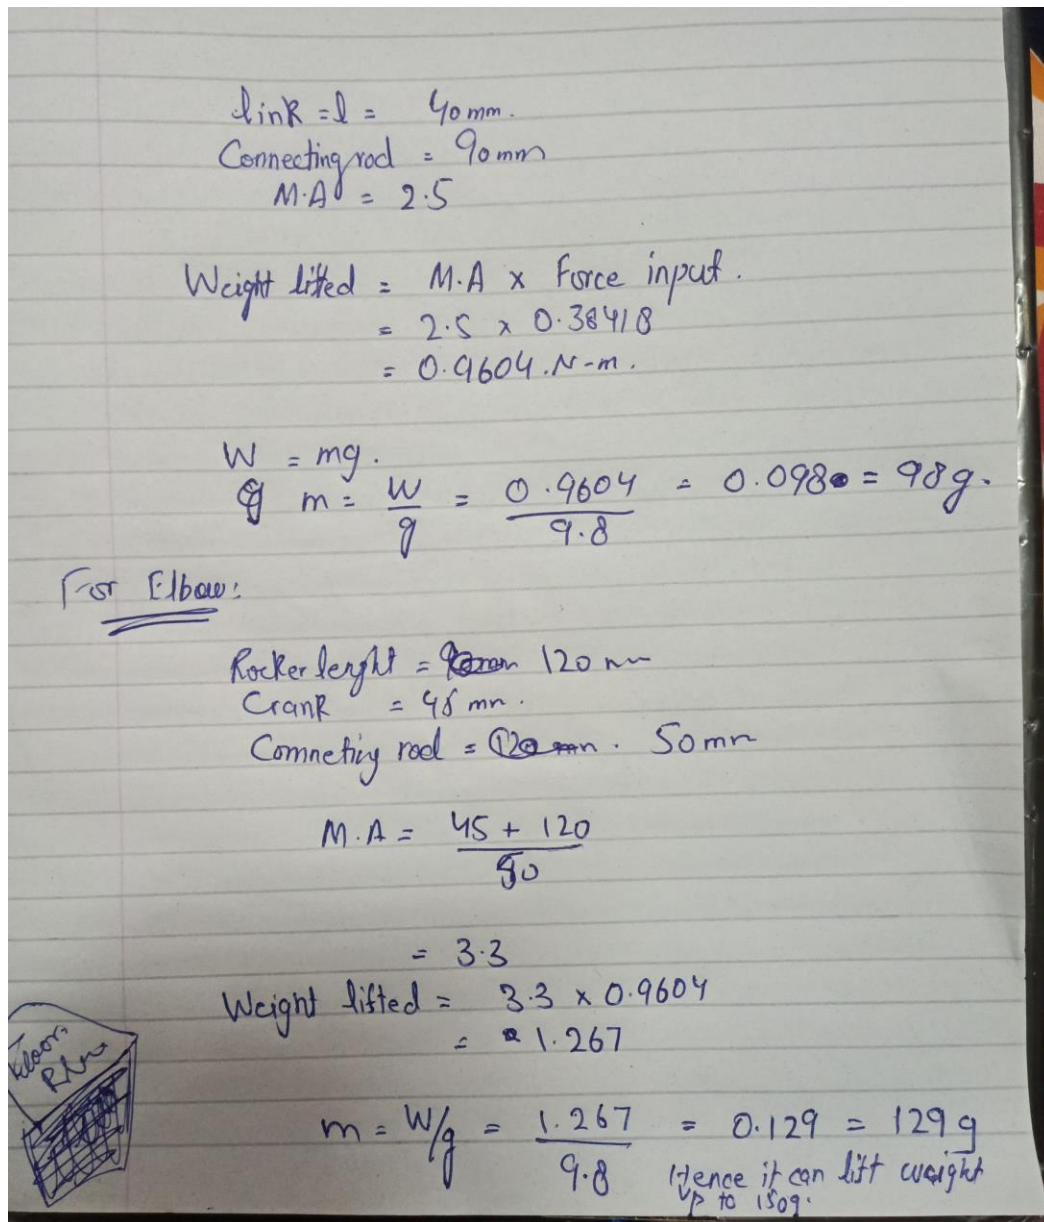 link = l = 40 mm.
Connecting rod = 90 mm
M.A = 2.5
Weight lifted = M.A x Force input.
= 2.5 x 0.38418
= 0.9604 .N-m.
W = mg.
m = W/g = 0.9604/9.8 = 0.098 = 98g.
For Elbow:
Rocker lenght = 120 mm
Crank = 45 mm.
Conneting rod = 50 mm
M.A = 45 + 120/50
= 3.3
Weight lifted = 3.3 x 0.9604
= 1.267
m = W/g = 1.267/9.8 = 0.129 = 129 g
Hence it can lift weight
up to 150g.